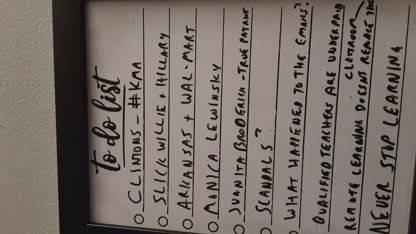 to do list
CLINTONS - #KMA
SLICK WILLIE + HILLARY
ARKANSAS + WAL-MART
MONICA LEWINSKY
JUANITA BRODERICK - TRUE PATRIOT
SCANDALS?
WHAT HAPPENED TO THE EMAILS?
QUALIFIED TEACHERS ARE UNDERPAID
REMOTE LEARNING DOESN'T REPLACE THE
CLASSROOM
NEVER STOP LEARNING